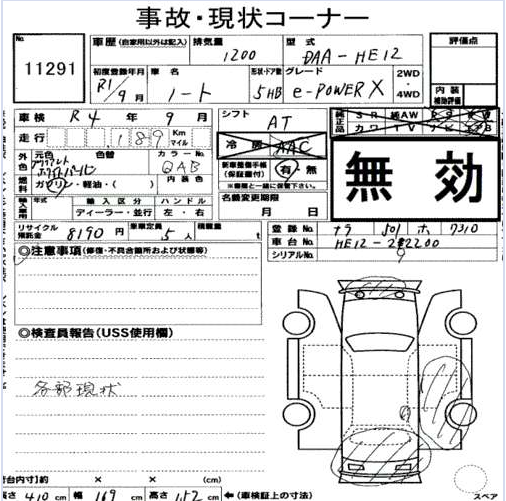 事故・現状コーナー
No. 11291
車歴 (自家用以外は記入) 排気量 1200 型式 DAA-HE12 評価点
初度登録年月 R1/9月 車名 ノート 形状・ドア数 5HB グレード e-POWER X 2WD・4WD 内装補助評価
車検 R4年 9月 シフト AT 純正品 SR 純AW PS PW
走行 189 Km マイル 冷房 AAC カワ TV ナビ
無効
外色 元色 色替 カラーNo. QAB 新車整備手帳(保証書付) 有・無
燃料 ガソリン・軽油・( ) 内装色 ※書類と一緒に保管下さい。
輸入用 年式 輸入区分 ハンドル 名義変更期限
ディーラー・並行 左・右 月 日
リサイクル預託金 8190円 乗車定員 5人 積載量 t 登録No. ナラ 501 ホ 7310
車台No. HE12-
シリアルNo. 9
◎注意事項 (修復・不具合箇所および状態等)
◎検査員報告 (USS使用欄)
各部現状
荷台内寸) 約 × × (cm)
長さ 410 cm 幅 169 cm 高さ 152 cm ←(車検証上の寸法) スペア